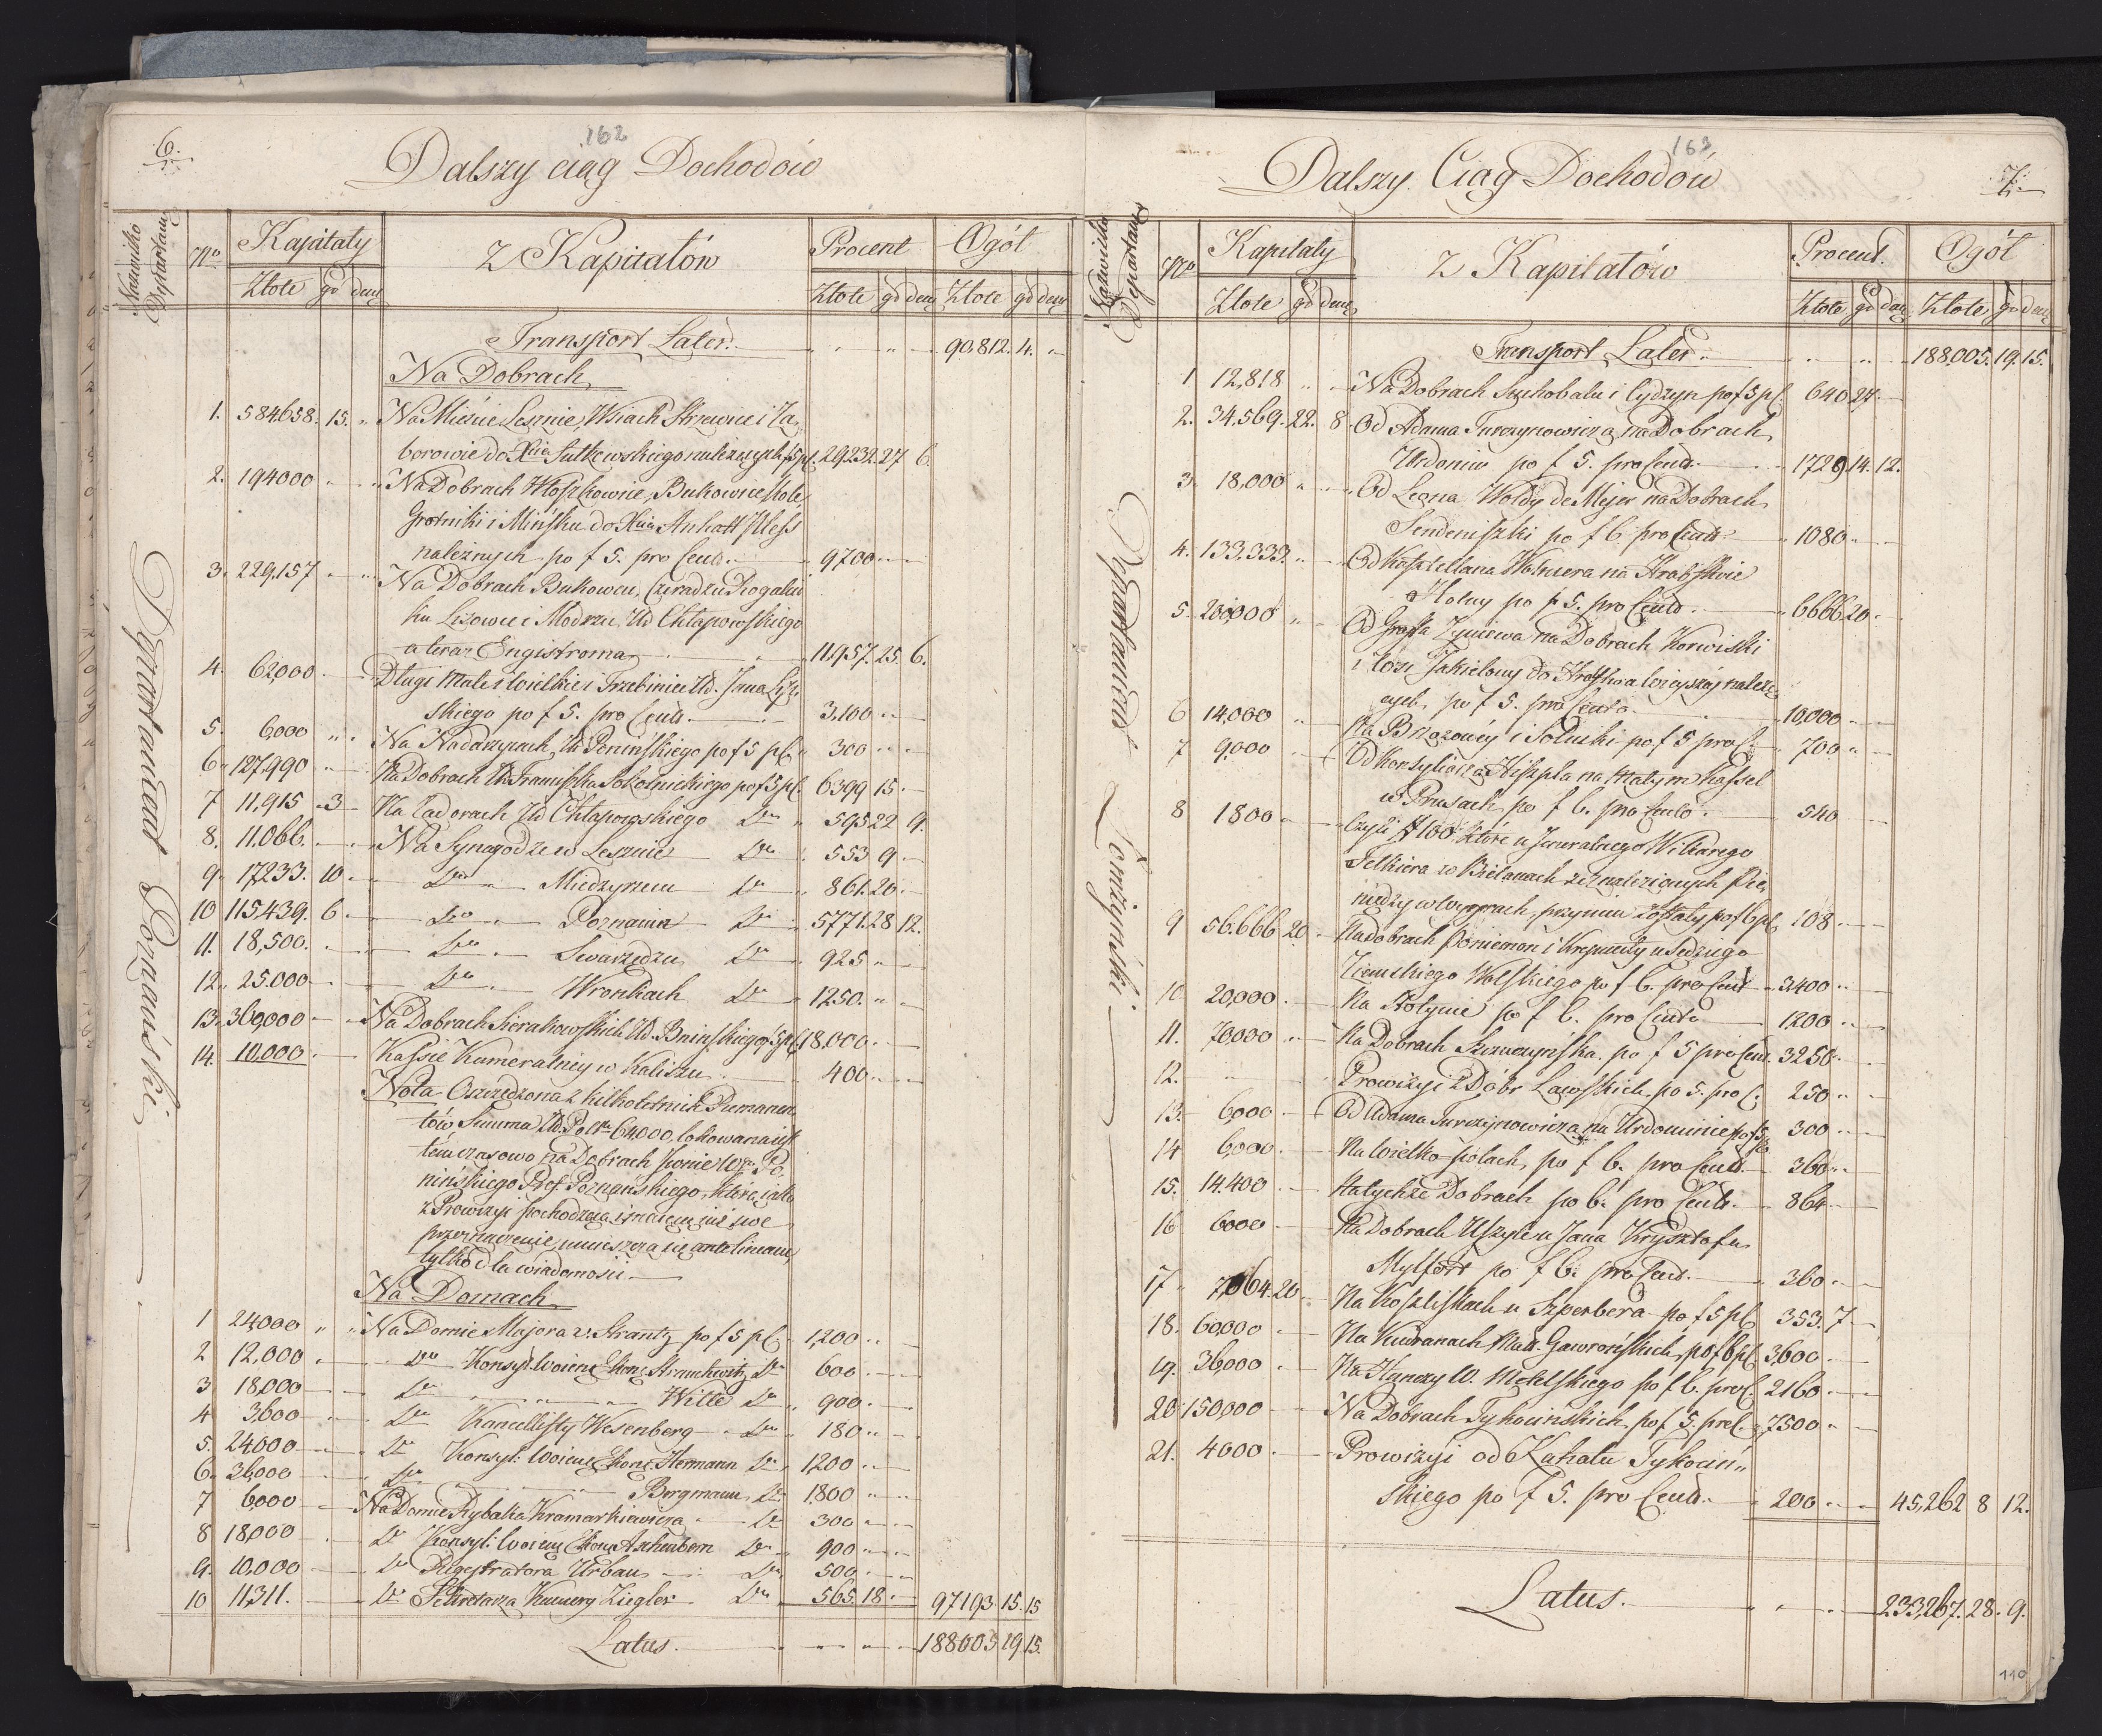 6.
162
Dalszy ciąg Dochodów
Nazwisko Departam
No
Kapitały
Z Kapitałów
Procent
Ogół
Złote gr den
Złote gr den
Złote gr den
Transport Later. 90,812. 4.
Na Dobrach
1. 584658. 15. Na Mieście Lesznie, Wsiach Strzewce i Za
borowie do Xcia Sułkowskiego należących p 5 pC. 29,232. 27 6.
2. 194000 Na Dobrach Włoszkowie, Bukownie
Grotniki i Mińsku do Xcia Anhalt Pless
należnych po f 5. pro Cent. 9700
3. 229,157 Na Dobrach Bukowcu, Czeradzu Rogalin
ku i Modrzu, Ur Chłapowskiego
a teraz Engistroma 11,957. 25. 6.
4. 62,000 Długi Małe i Wielkie i Trzebinie Ur. Jana
skiego po f 5. pro Cent. 3,100
5. 6,000 Na Nadarzycach, Ur Ponińskiego po f 5 pC. 300
6. 127,990 Na Dobrach Ur. Franciszka Sokolnickiego po f 5 pC. 6399 15.
7 11,915 3 Na Ur Chłapowskiego Dto 595 22 9.
8. 11,066. Na Synagodze w Lesznie Dto 553 9
9. 17233. 10 Dto Miedzyrzecu Dto 861. 20.
10 115,439. 6 Dto Poznaniu Dto 5771. 28 12.
11. 18,500. Dto Swarzędzu Dto 925
12. 25.000 Dto Wronkach Dto 1250.
13. 360,000 Na Dobrach Sierakowskich Ur. Bnińskiego p 5 pC 18.000
14. 10,000 Kassie Kameralney w Kaliszu 400
Nota Oszczędzona z kilkoletnich Remanen
tów Summa 64,000. lokowana iest
tymczasowo na Dobrach
nińskiego Pref. Poznańskiego, która iako
z Prowizyi pochodząca i maiąca iuż swe
przeznaczenie, umieszcza się ante lineam,
tylko dla wiadomości.
Na Domach
1 24,000 Na Domie Majora v. Strantz po f 5 pC. 1,200
2 12,000 Dto Konsyl. Woien. Dto 600
3 18,000 Dto Wille Dto 900
4 3,600 Dto Kancellisty Wesenberg Dto 180
5. 24,000 Dto Konsyl: Woien. Hermann Dto 1,200
6. 36,000 Dto Bergmann, Dto 1,800
7 6,000 Na Domie Rybaka Kramarkiewicza Dto 300
8 18,000 Dto Konsyl: Woien. Aschenborn Dto 900
9. 10,000 Dto Regestratora Urban Dto 500
10 11,311. Dto Sekretarza Kamery Ziegler Dto 565. 18. 97193. 15. 15
Latus. 188005 19. 15.
Departament Poznański.
163
7.
Dalszy Ciąg Dochodów
Nazwisko Departam
No
Kapitały
Z Kapitałów
Procent.
Ogół
Złote gr den
Złote gr den
Złote gr den
Transport Later. 188,005. 19. 15.
1 12,818 Na Dobrach Suchobalu i Cydzyn po f 5 pC. 640 27
2. 34,569. 22. 8 Od Adama Turczynowicza, na Dobrach
Urdomin po f 5. pro Cent. 1728. 14. 12.
3. 18,000 Od Leona Woldy de Mejer na Dobrach
Sendeniszki po f 6. pro Cent. 1080
4. 133,333. Od Kasztellana na Hrabstwie
po f 5. pro Cent. 6666 20
5. 200,000 Od Grafa Zyniewa na Dobrach Korwiski
i do Hrabstwa wyższej należą
cych, po f 5. pro Cento 10,000
6 14,000 Na Brzozówey i Solniki po f 5 pro C. 700
7 9,000 Od Konsyliarza na Małym Kassel
w Prusach po f 6. pro Cento. 540
8 1800 Czyli # 100 które u
w Bielanach zeznalezionych Pie
niędzy przyięte zostały po f 6 pC. 108
9 56.666 20 Na dobrach Poniemon i u Sędziego
Ziemskiego Wolskiego po f 6. pro Cent 3400
10 20,000. Na po f 6. pro Cento 1200
11. 70,000 Na Dobrach Szczuczynska. po f 5 pro Cent. 3250
12. Prowizyi z Dóbr Lawskich po 5. pro C. 250
13. 6,000 Od Adama Turczynowicza na Urdominie po f 5 300
14 6,000. Na Wielko-polach, po f 6. pro Cent. 360
15. 14.400 Na tychże Dobrach po 6. pro Cent. 864
16 6000 Na Dobrach u Jana Krysztofa
po f 6. pro Cent. 360
17 7,064. 20 Na Koszliskach u Szperbera po f 5 pC. 353. 7
18. 60,000 Na Kudranach Mał. Gaworońskich, po f 6 pC. 3,600
19. 36,000 Na Hanczy W. po f 6. pro C. 2160
20 150,000 Na Dobrach Tykocińskich, po f 5. pro C. 7500
21. 4000. Prowizyi od Kahalu Tykociń
skiego po f 5. pro Cent. 200 45,262 8 12.
Latus. 233,267. 28. 9.
Departament Łomżyński
110